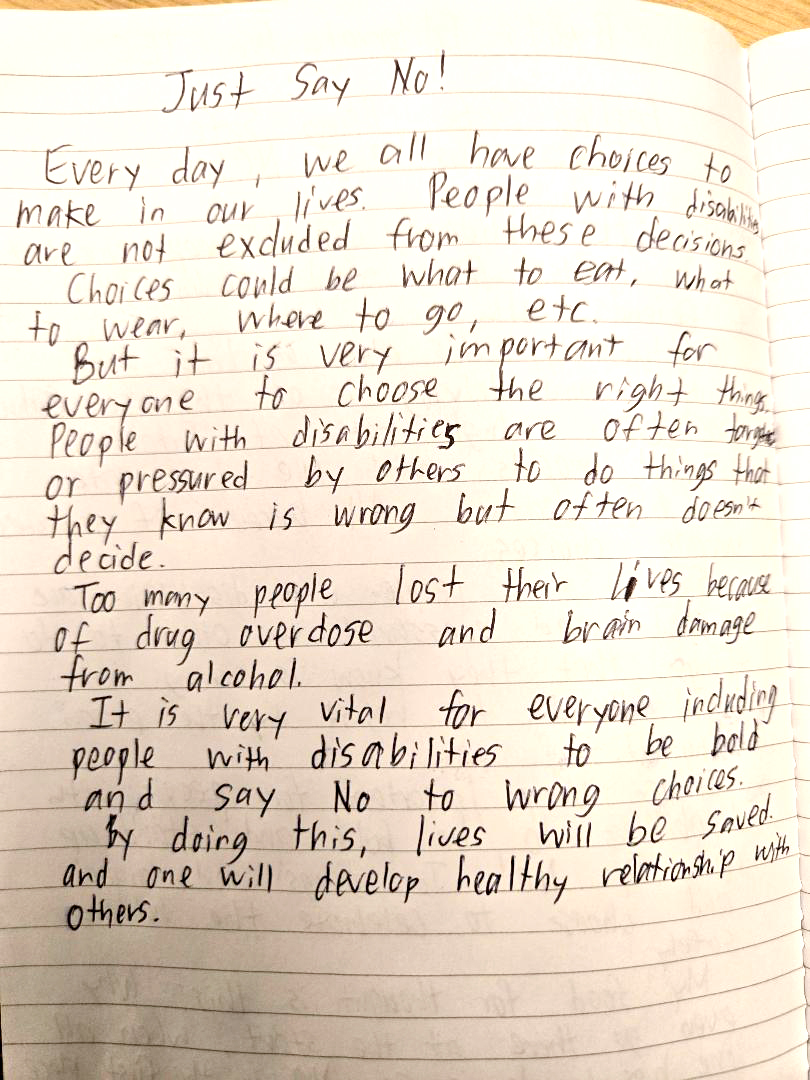 Just Say No!
Every day, we all have choices to
make in our lives. People with disabilities
are not excluded from these decisions.
Choices could be what to eat, what
to wear, where to go, etc.
But it is very important for
everyone to choose the right things.
People with disabilities are often
or pressured by others to do things that
they know is wrong but often doesn't
decide.
Too many people lost their lives because
of drug overdose and brain damage
from alcohol.
It is very vital for everyone including
people with disabilities to be bold
and say No to wrong choices.
By doing this, lives will be saved.
and one will develop healthy relationship with
others.